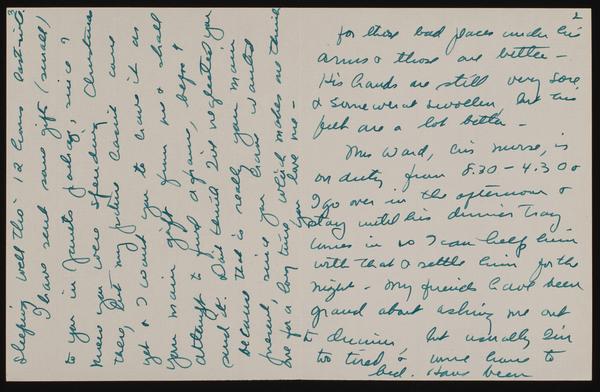 2
for those bad places under his
arms & those are better –
His hands are still very sore
& somewhat swollen, but his
feet are a lot better –
Mrs Ward, his nurse, is
on duty from 8:30 – 4:30 &
I go over in the afternoon &
stay until his dinner tray
comes in so I can help him
with that & settle him for the
night – My friends have been
grand about asking me out
to dinner but usually I'm
too tired & come home to
bed. Have been
3
sleeping well tho' 12 hours
I have sent some gifts (small)
to you in Janet's
you were spending Christmas
there, but my picture hasn't come
yet & I want you to have it as
your main gift from me & shall
attempt to find a frame,
and it. Don't think I've neglected you
because that is really your main
present, since you have wanted
one for a long time, which makes me think
you love me –